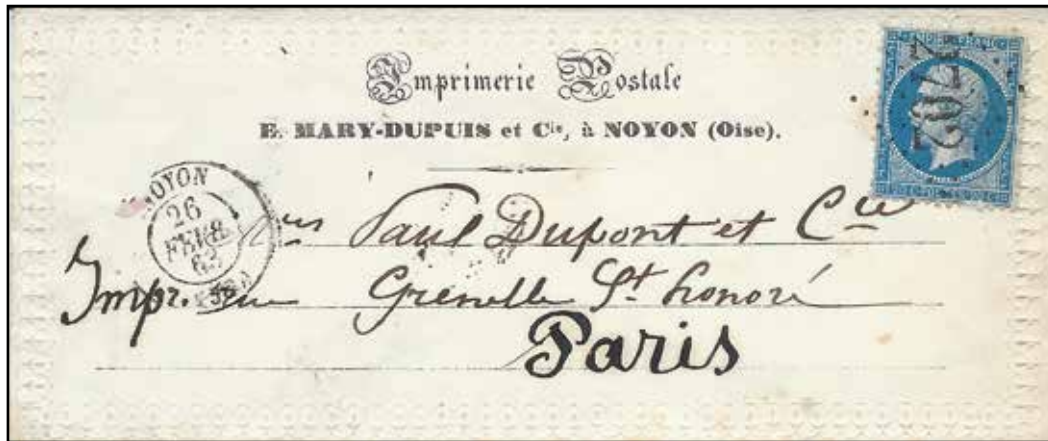 Imprimerie Postale
E. MARY-DUPUIS et Cie, à NOYON (Oise).
2702
EMPIRE FRANC
NOYON
26
FEVR.
63
Paul Dupont et Cie
Impr. rue Grenelle St. honoré
Paris